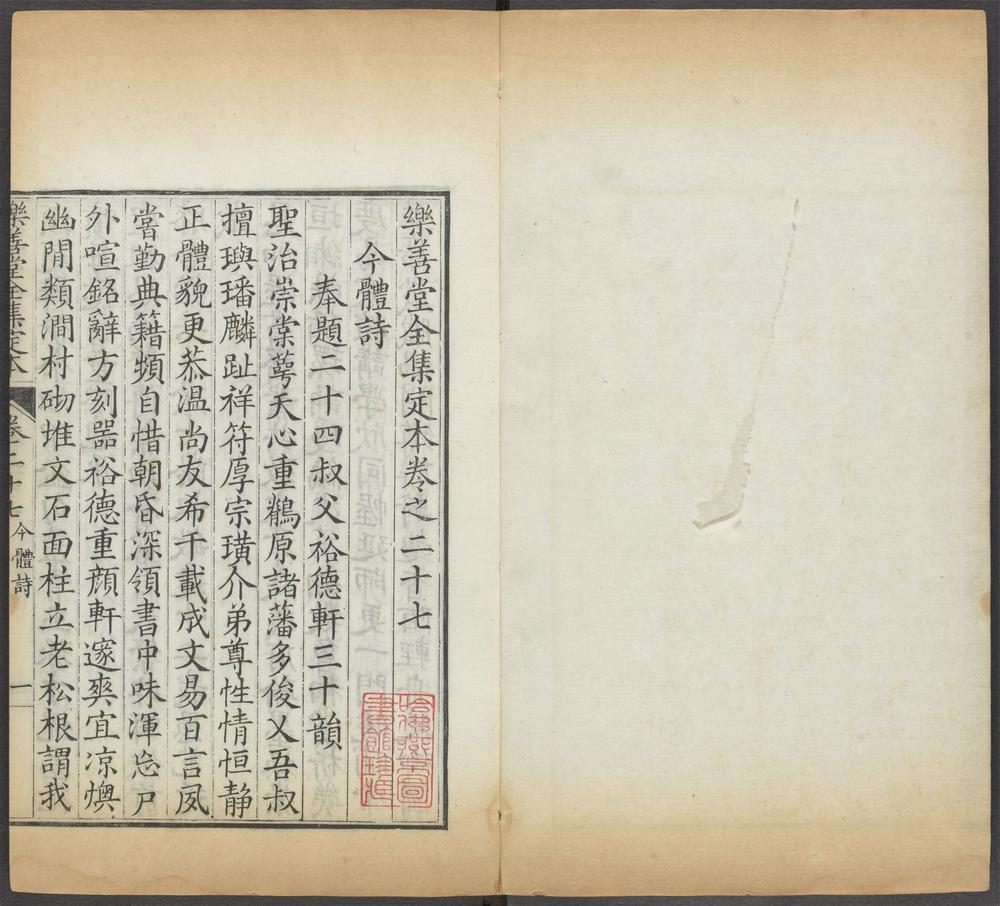 樂善堂全集定本卷之二十七
今體詩
奉題二十四叔父裕德軒三十韻
聖治崇棠萼天心重鶺原諸藩多俊乂吾叔
擅璵璠麟趾祥符厚宗璜介弟尊性情恒静
正體貌更恭温尚友希千載成文易百言夙
嘗勤典籍頻自惜朝昏深領書中味渾忘户
外喧銘辭方刻噐裕德重顔軒邃爽宜凉燠
幽閒類澗村砌堆文石面柱立老松根謂我
樂善堂全集定本
卷二十七 今體詩
一
哈佛燕京圖
書館珍藏